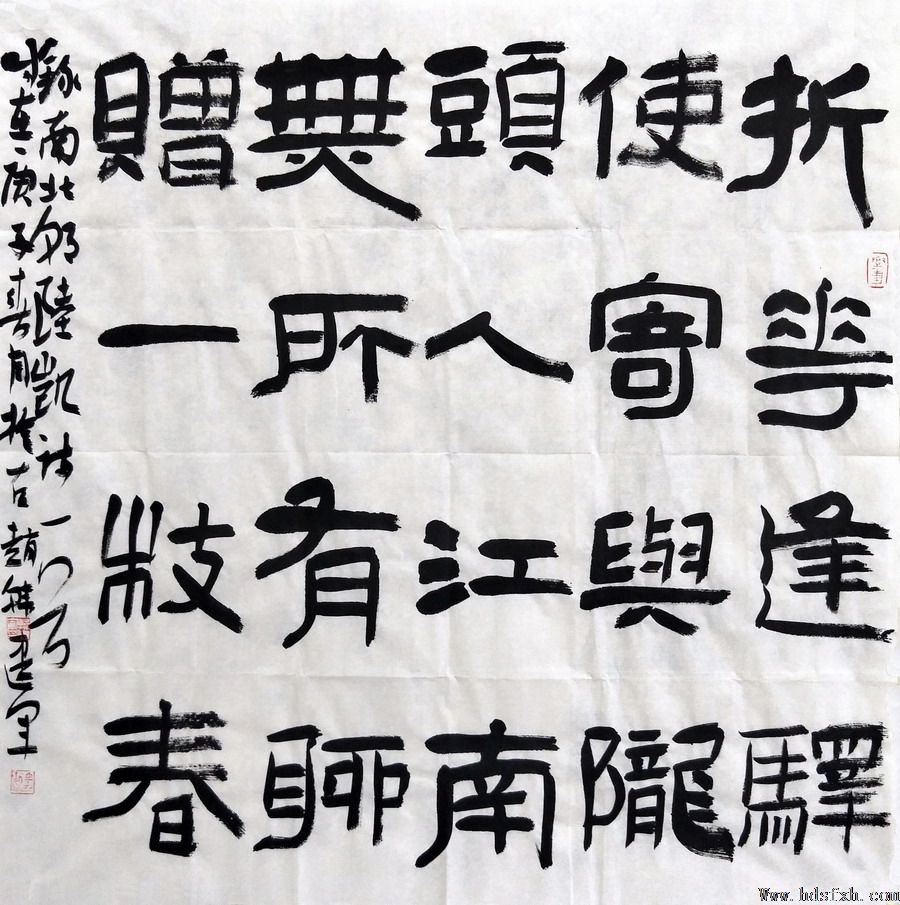 折華逢驛
使寄與隴
頭人江南
無所有聊
贈一枝春
錄南北朝陸凱詩一首
時在庚子春月於古趙建軍
Www.hdsfxh.com